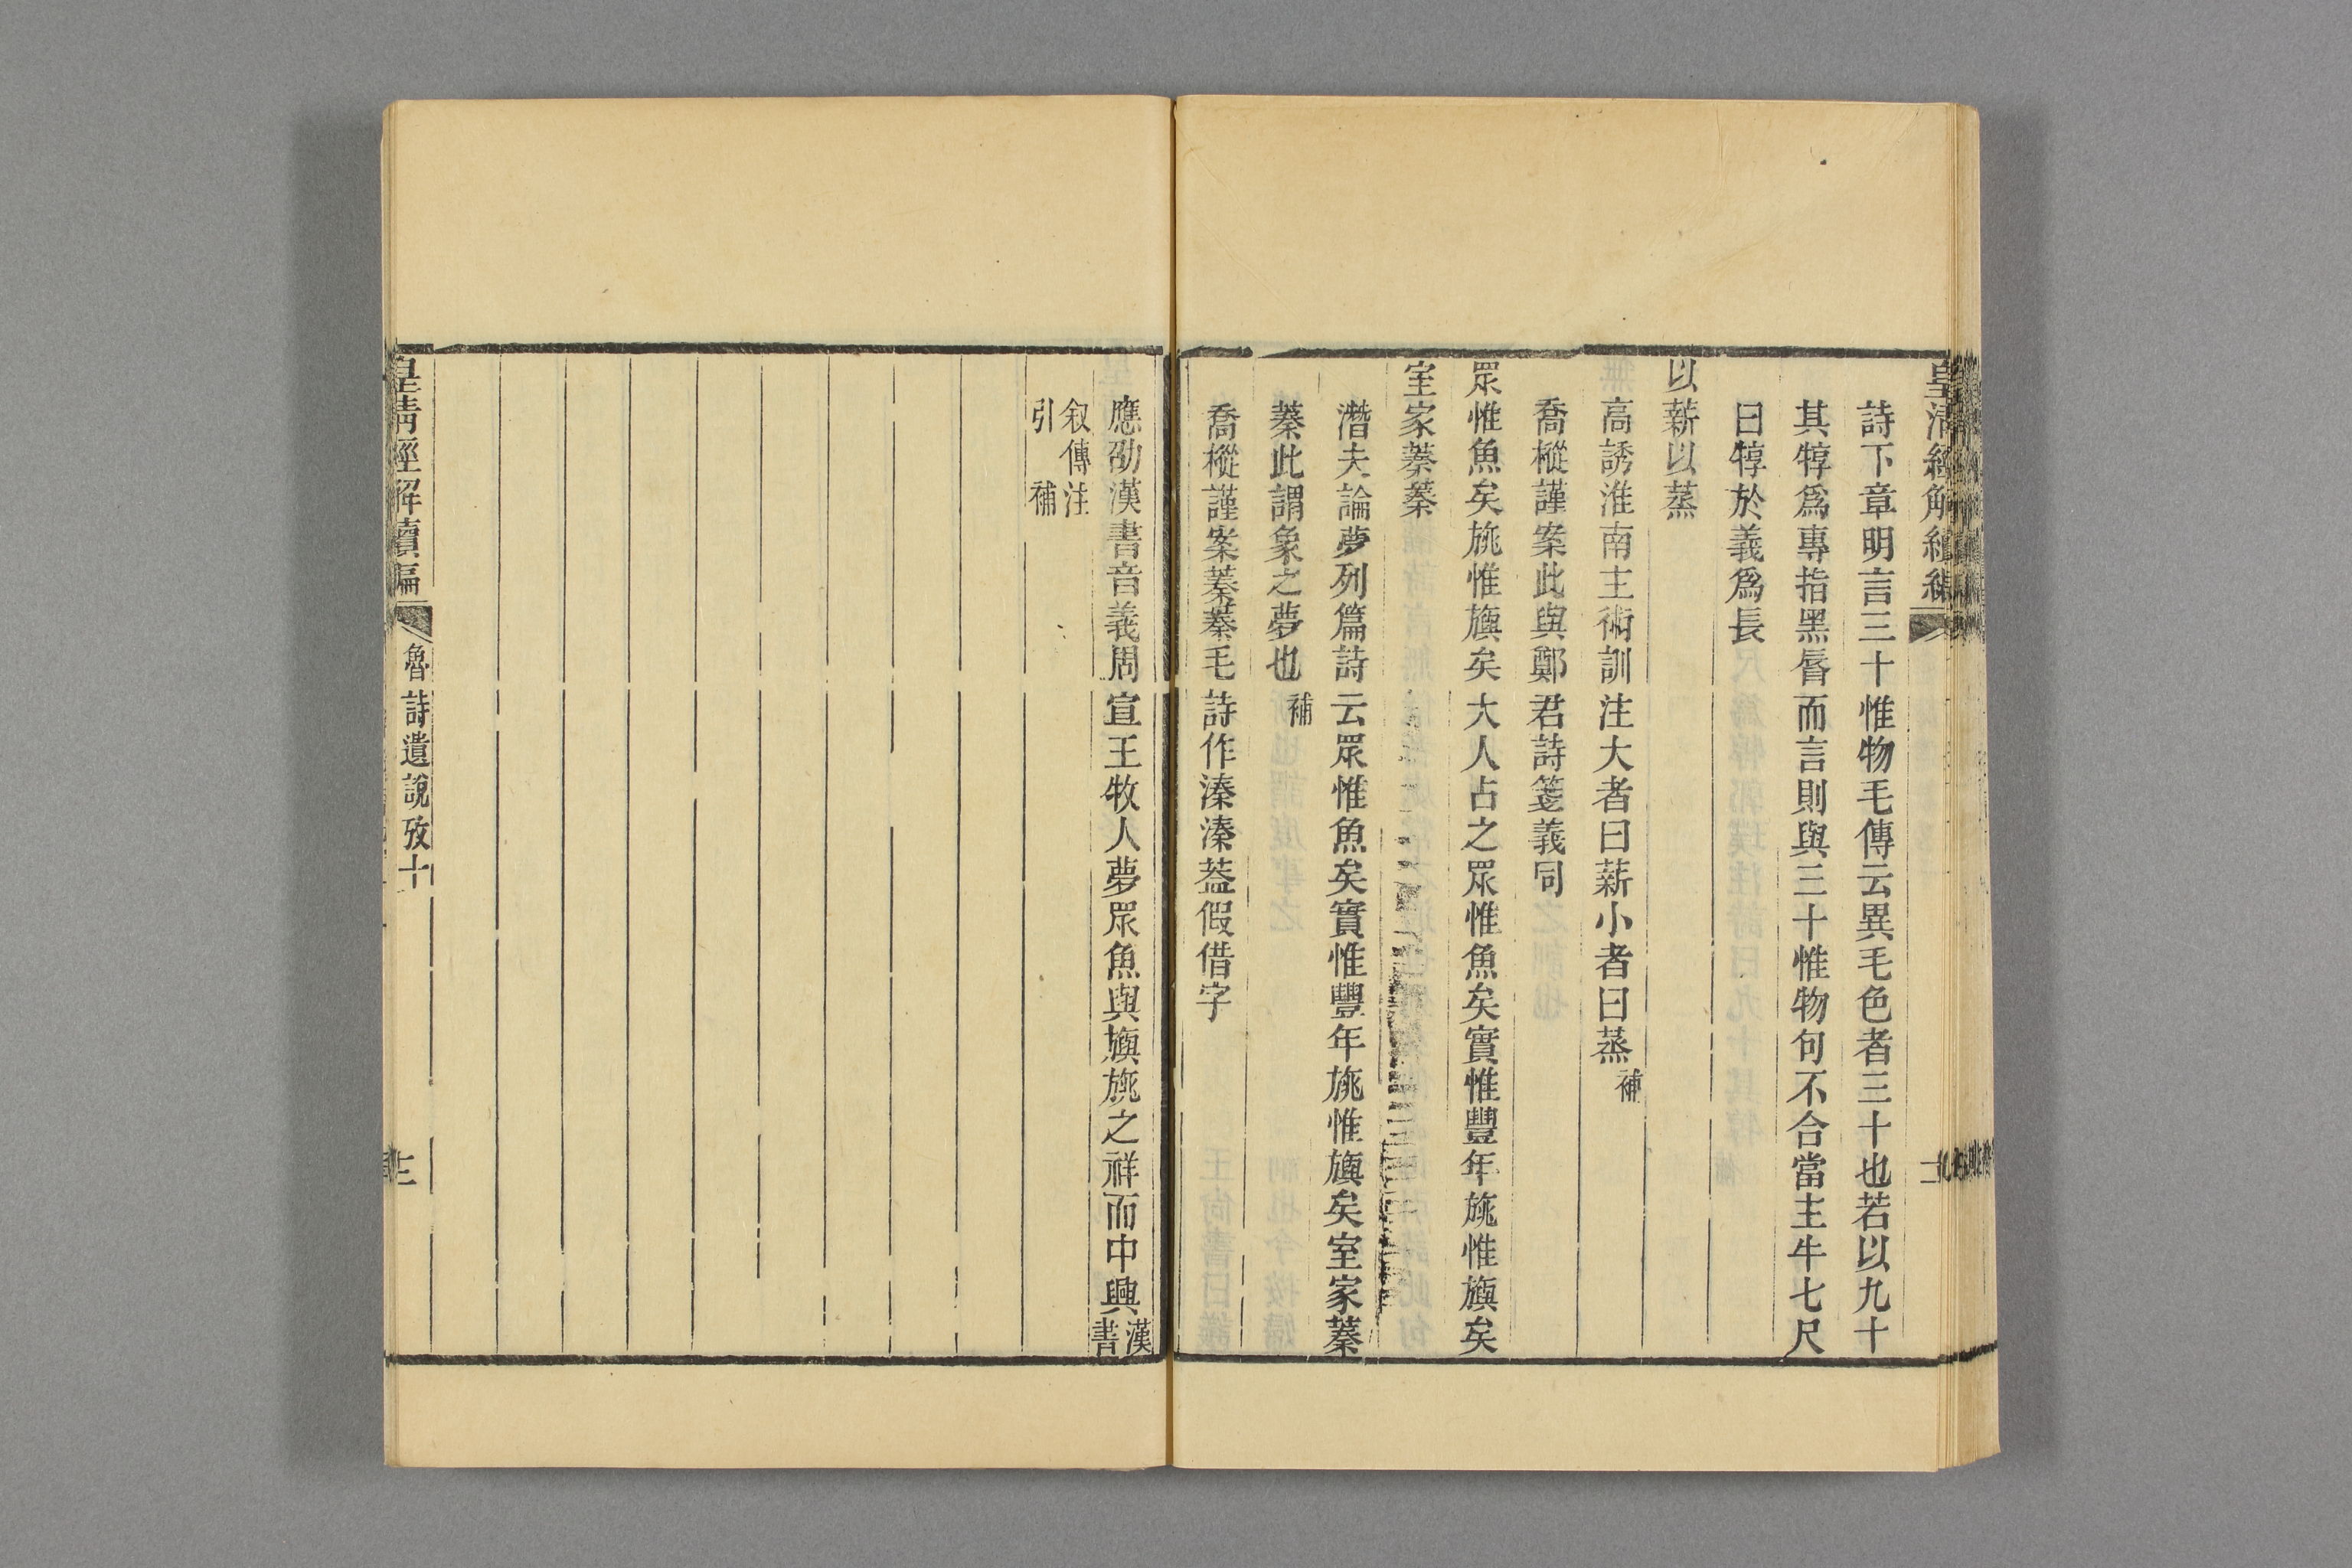 皇清經解續編
詩下章明言三十惟物毛傳云異毛色者三十也若以九十
其犉爲專指黑脣而言則與三十惟物句不合當主牛七尺
曰犉於義爲長
以薪以蒸
高誘淮南主術訓注大者曰薪小者曰蒸補
喬樅謹案此與鄭君詩箋義同
眾惟魚矣旐惟旟矣大人占之眾惟魚矣實惟豐年旐惟旟矣
室家蓁蓁
潛夫論夢列篇詩云眾惟魚矣實惟豐年旐惟旟矣室家蓁
蓁此謂象之夢也補
喬樅謹案蓁蓁毛詩作溱溱葢假借字
應劭漢書音義周宣王牧人夢眾魚與旟旐之祥而中興漢書
叙傳注
引補
皇清經解續編
魯詩遺說攷十